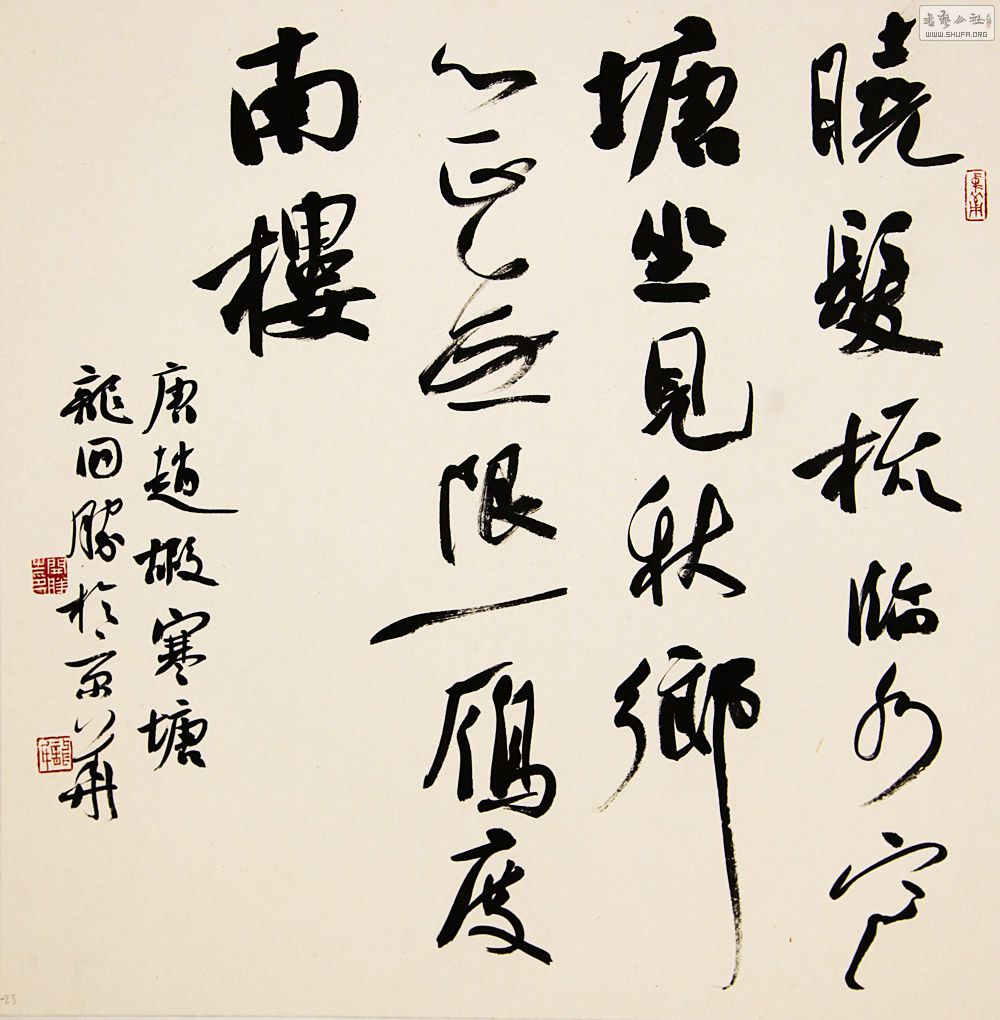 曉髮梳臨水寒
塘坐見秋鄉
心正無限一鴈度
南樓
唐趙嘏寒塘
龍開勝於京華
書藝公社
WWW.SHUFA.ORG
-23